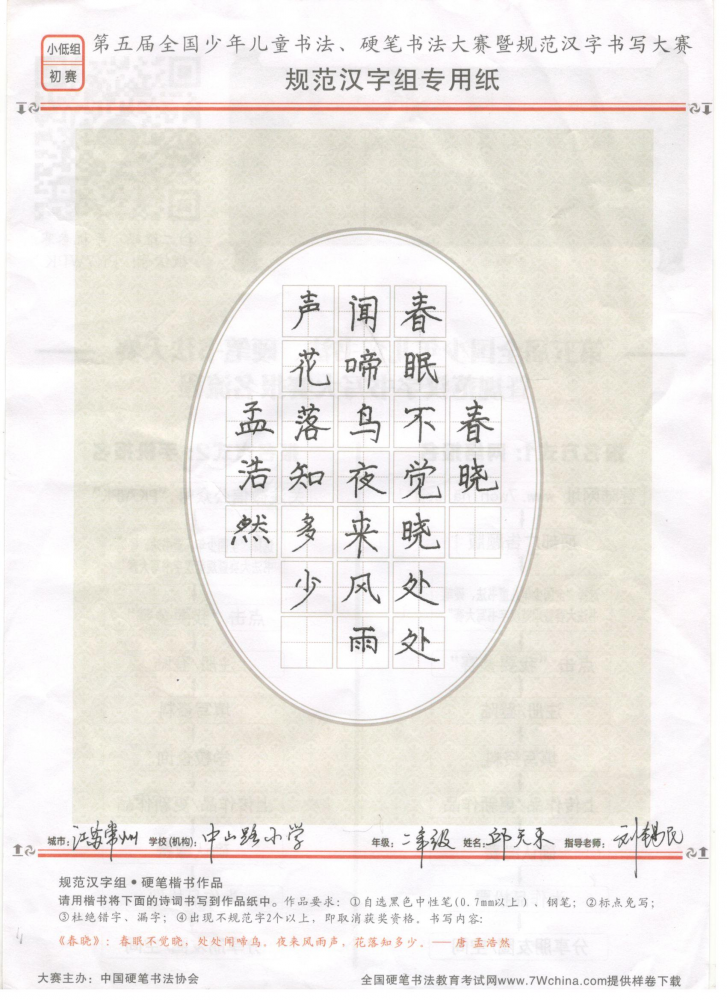 小低组
初赛
第五届全国少年儿童书法、硬笔书法大赛暨规范汉字书写大赛
规范汉字组专用纸
春晓
春眠不觉晓处处
闻啼鸟夜来风雨
声花落知多少
孟浩然
城市:江苏常州 学校(机构):中山路小学 年级:二年级 姓名:邱天来 指导老师:刘锡民
规范汉字组•硬笔楷书作品
请用楷书将下面的诗词书写到作品纸中。作品要求:①自选黑色中性笔(0.7mm以上)、钢笔;②标点免写;
③杜绝错字、漏字;④出现不规范字2个以上,即取消获奖资格。书写内容:
《春晓》:春眠不觉晓,处处闻啼鸟。夜来风雨声,花落知多少。——唐 孟浩然
大赛主办:中国硬笔书法协会 全国硬笔书法教育考试网www.7Wchina.com提供样卷下载